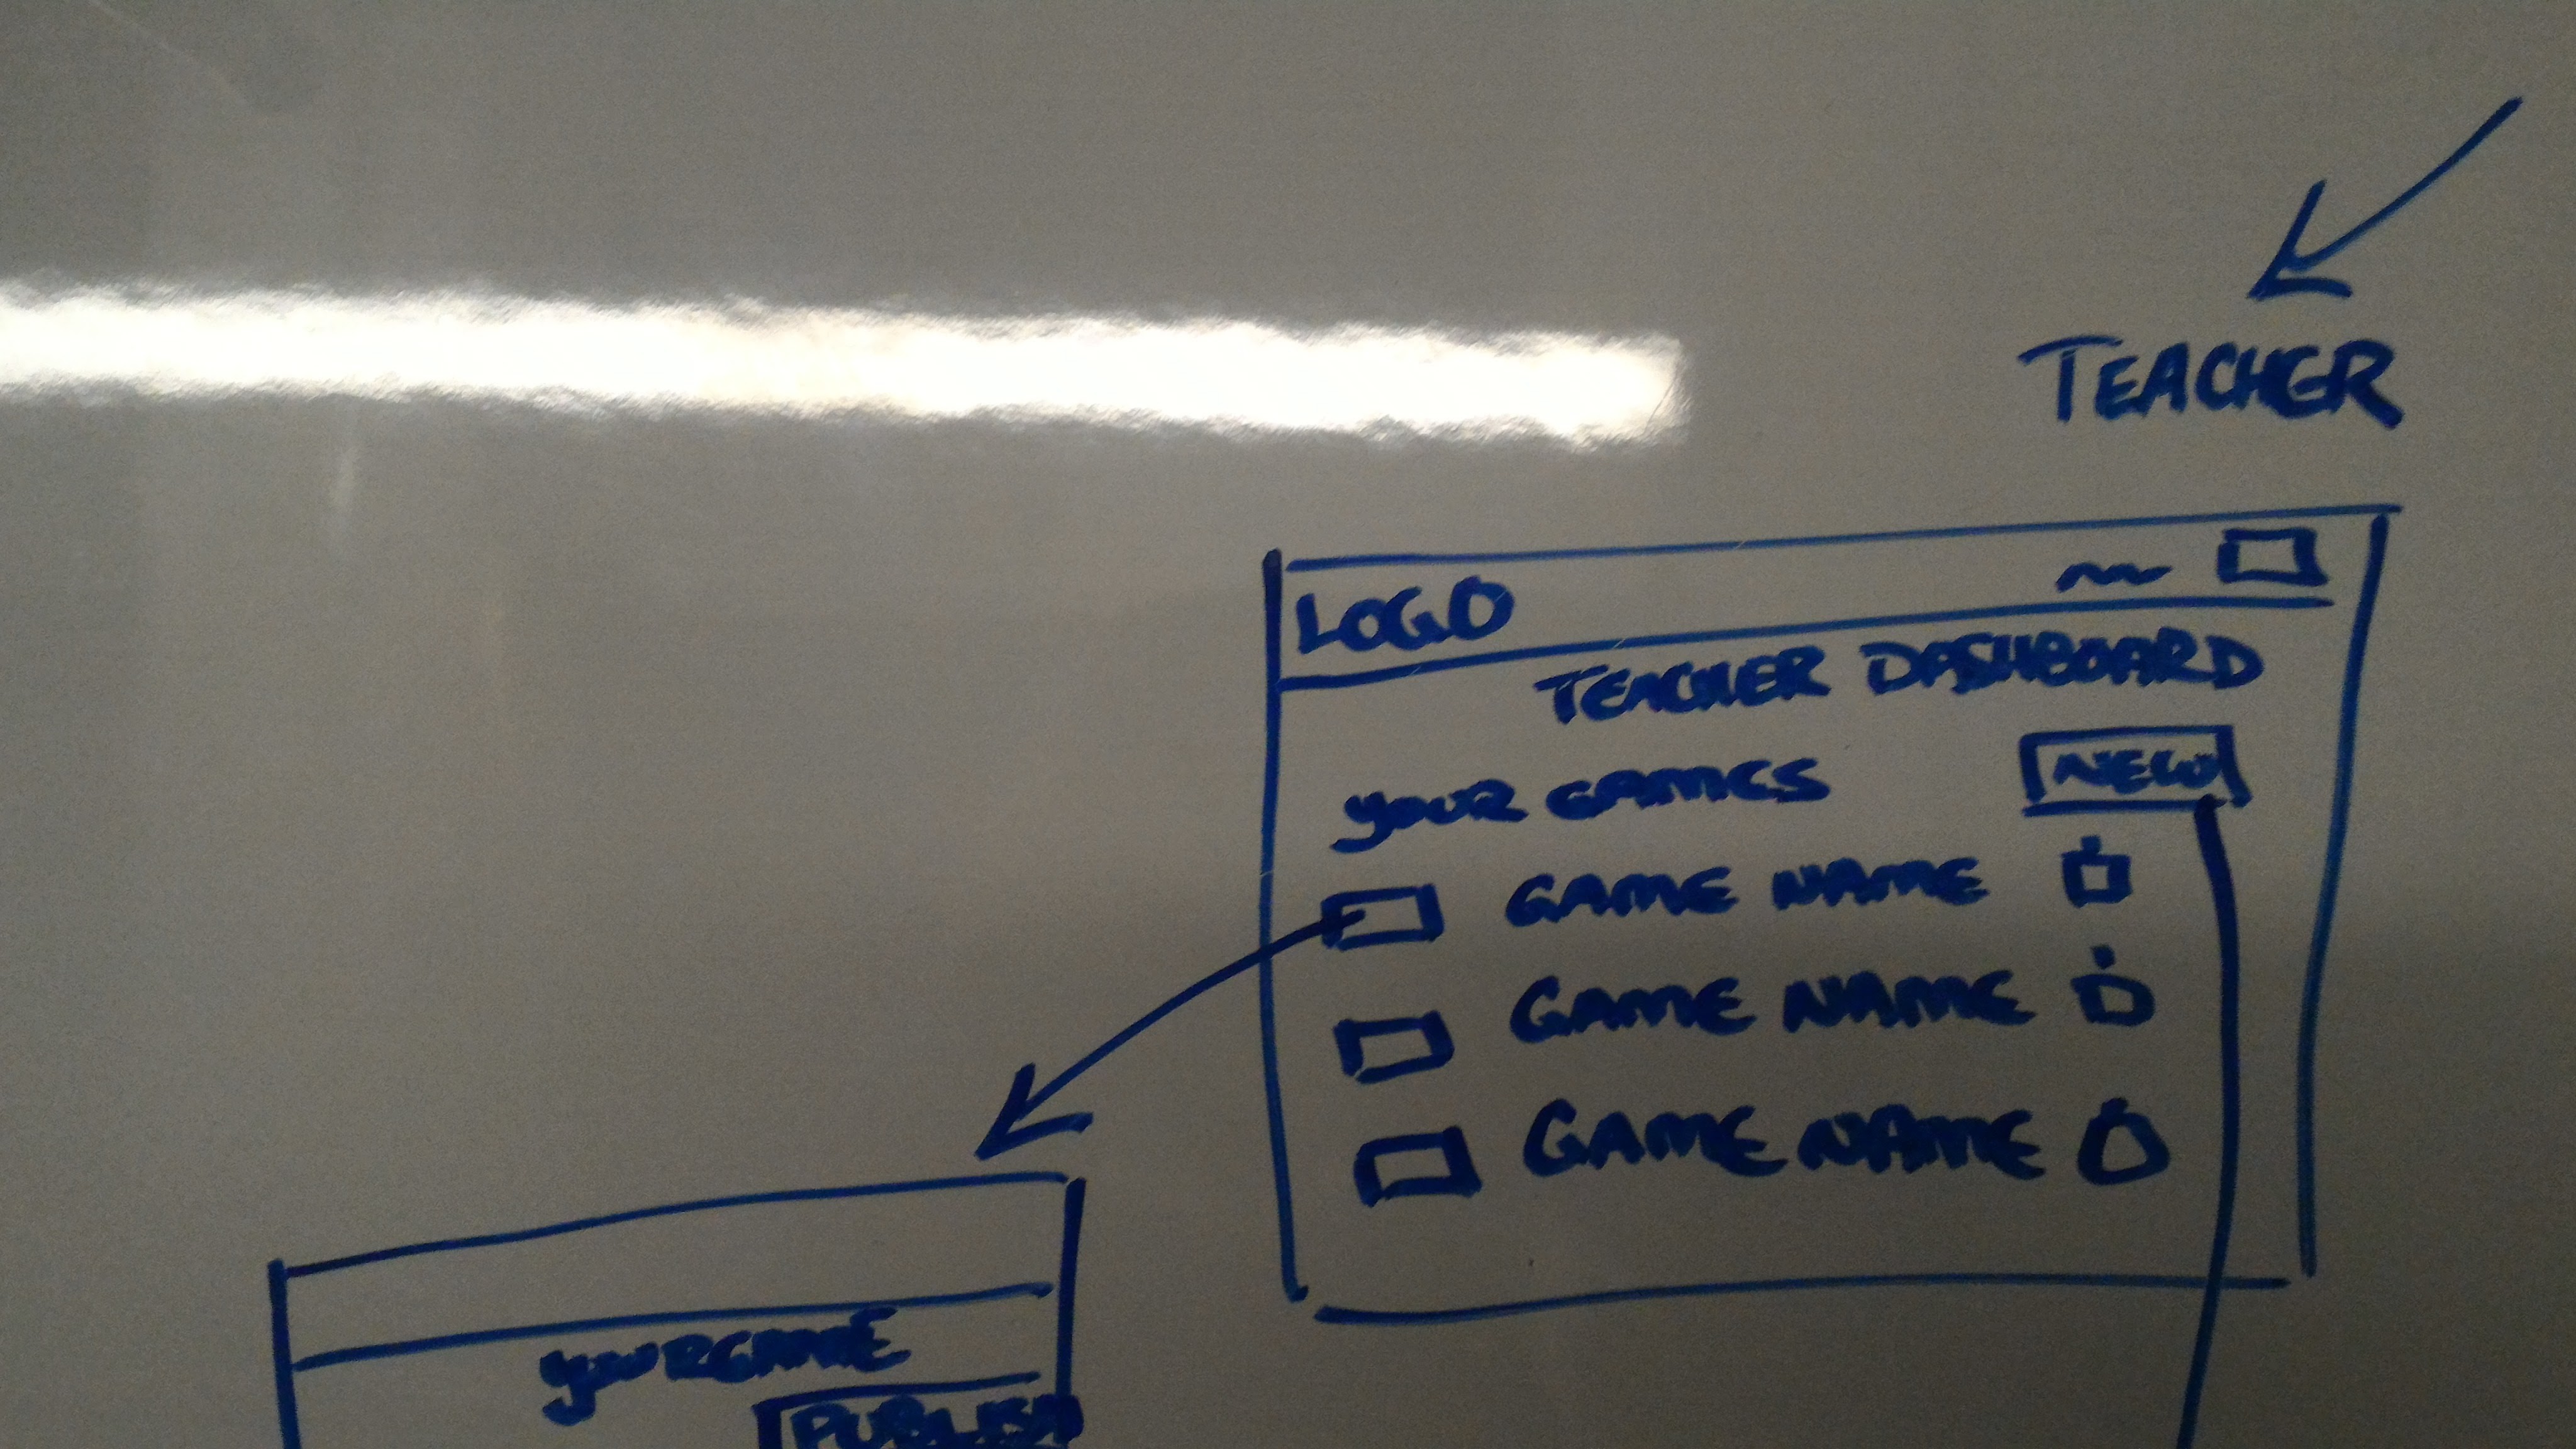 TEACHER
LOGO
TEACHER DASHBOARD
YOUR GAMES NEW
GAME NAME
GAME NAME
GAME NAME
YOUR GAME
PUBLISH